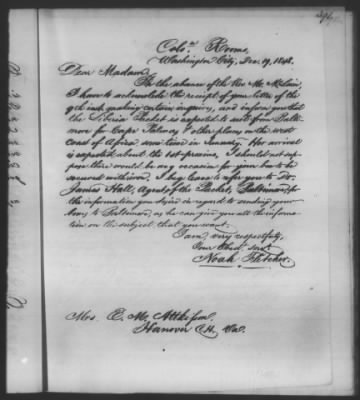 Colo.n Rooms,
Washington City, Dec. 19, 1848.
Dear Madam,
In the absence of the Rev. Mr. McLain,
I have to acknowledge the receipt of your letter of the
9th inst. making certain inquiry, and inform you that
the Liberia Packet is expected to sail from Balti-
more for Cape Palmas & other places on the west
coast of Africa some time in January. Her arrival
is expected about the 1st proximo, I should not sup-
pose there would be any occasion for your boys to be
vaccinated with it. I beg leave to refer you to Dr.
James Hall, Agent of the Packet, Baltimore, for
the information you desire in regard to sending your
boxes to Baltimore, as he can give you all the informa-
tion on the subject that you want.
I am, very respectfully,
Your Obed. servt.
Noah Fletcher.
Mrs. C. M. Attkisson
Hanover C.H. Va.